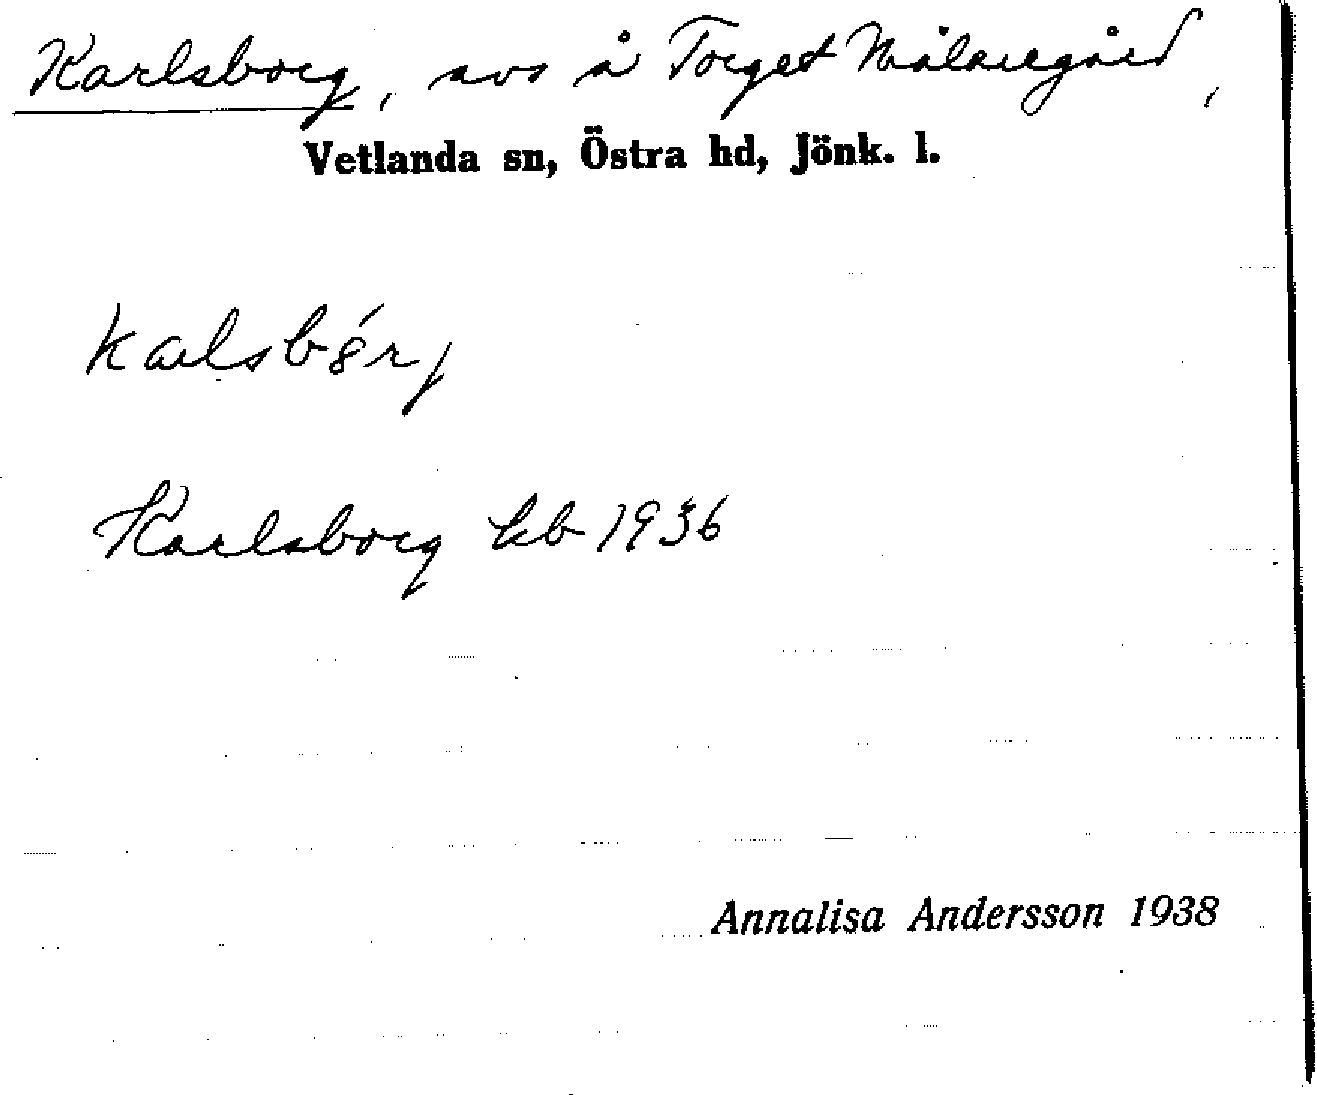 Karlsborg, avs å Torget Målaregård,
Vetlanda sn, Östra hd, Jönk. l.
kalsbórj
Karlsborg kb 1936
Annalisa Andersson 1938